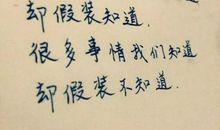 却假装知道.
很多事情我们知道
却假装不知道.